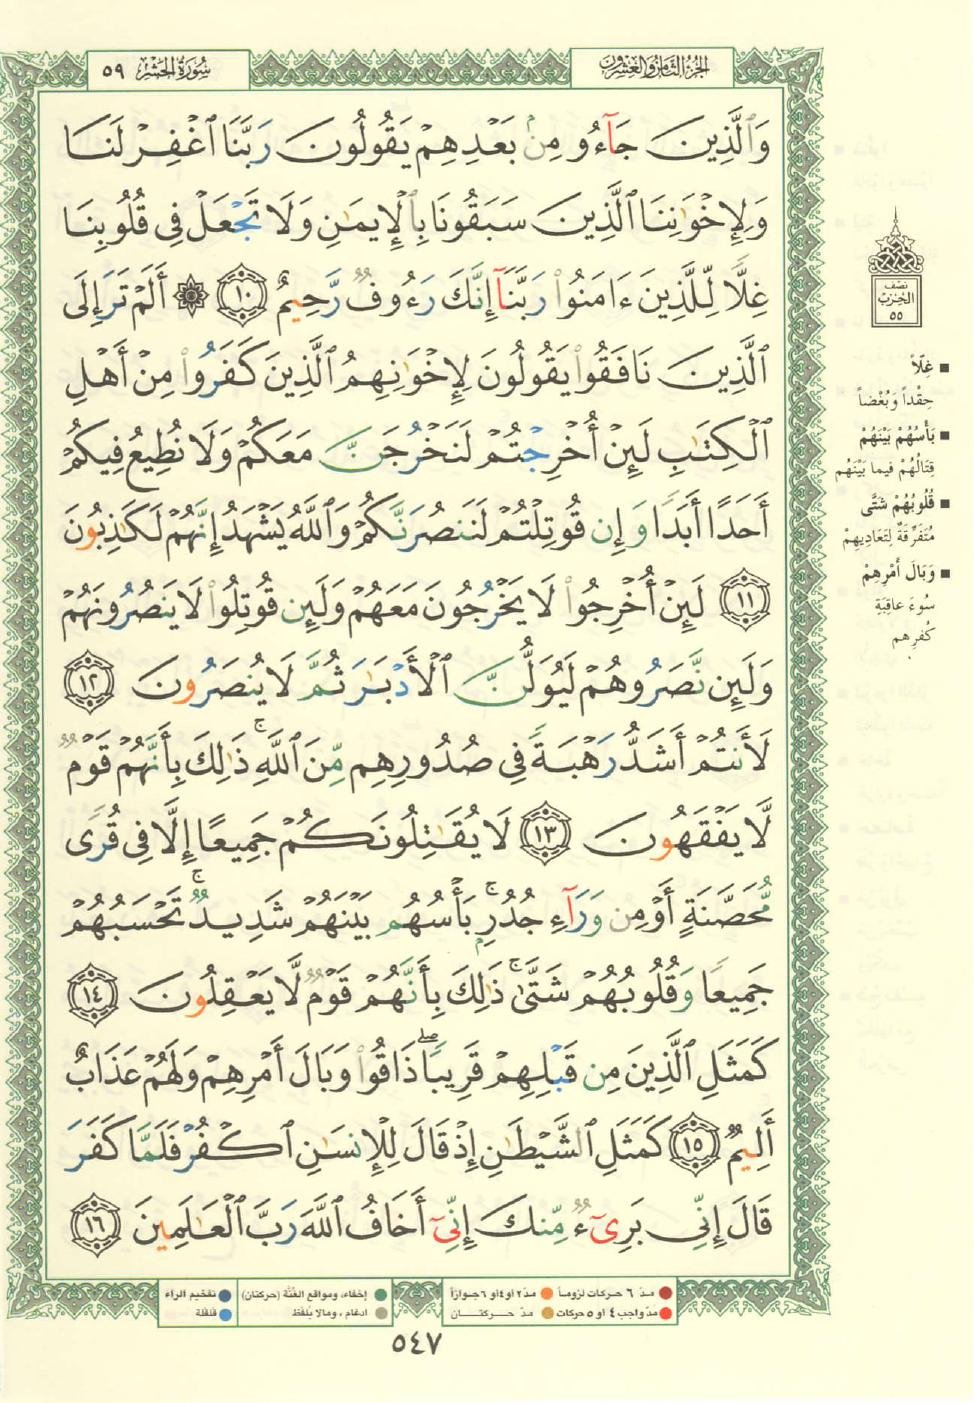 سُورَةُ الحَشْرِ ٥٩
الجُزْءُ الثَّامِنُ وَالعِشْرُونَ
وَٱلَّذِينَ جَآءُو مِنۢ بَعْدِهِمْ يَقُولُونَ رَبَّنَا ٱغْفِرْ لَنَا
وَلِإِخْوَٰنِنَا ٱلَّذِينَ سَبَقُونَا بِٱلْإِيمَٰنِ وَلَا تَجْعَلْ فِى قُلُوبِنَا
غِلًّا لِّلَّذِينَ ءَامَنُوا۟ رَبَّنَآ إِنَّكَ رَءُوفٌ رَّحِيمٌ ١٠ ۞ أَلَمْ تَرَ إِلَى
ٱلَّذِينَ نَافَقُوا۟ يَقُولُونَ لِإِخْوَٰنِهِمُ ٱلَّذِينَ كَفَرُوا۟ مِنْ أَهْلِ
ٱلْكِتَٰبِ لَئِنْ أُخْرِجْتُمْ لَنَخْرُجَنَّ مَعَكُمْ وَلَا نُطِيعُ فِيكُمْ
أَحَدًا أَبَدًا وَإِن قُوتِلْتُمْ لَنَنصُرَنَّكُمْ وَٱللَّهُ يَشْهَدُ إِنَّهُمْ لَكَٰذِبُونَ
١١ لَئِنْ أُخْرِجُوا۟ لَا يَخْرُجُونَ مَعَهُمْ وَلَئِن قُوتِلُوا۟ لَا يَنصُرُونَهُمْ
وَلَئِن نَّصَرُوهُمْ لَيُوَلُّنَّ ٱلْأَدْبَٰرَ ثُمَّ لَا يُنصَرُونَ ١٢
لَأَنتُمْ أَشَدُّ رَهْبَةً فِى صُدُورِهِم مِّنَ ٱللَّهِ ۚ ذَٰلِكَ بِأَنَّهُمْ قَوْمٌ
لَّا يَفْقَهُونَ ١٣ لَا يُقَٰتِلُونَكُمْ جَمِيعًا إِلَّا فِى قُرًى
مُّحَصَّنَةٍ أَوْ مِن وَرَآءِ جُدُرٍ ۚ بَأْسُهُم بَيْنَهُمْ شَدِيدٌ ۚ تَحْسَبُهُمْ
جَمِيعًا وَقُلُوبُهُمْ شَتَّىٰ ۚ ذَٰلِكَ بِأَنَّهُمْ قَوْمٌ لَّا يَعْقِلُونَ ١٤
كَمَثَلِ ٱلَّذِينَ مِن قَبْلِهِمْ قَرِيبًا ۖ ذَاقُوا۟ وَبَالَ أَمْرِهِمْ وَلَهُمْ عَذَابٌ
أَلِيمٌ ١٥ كَمَثَلِ ٱلشَّيْطَٰنِ إِذْ قَالَ لِلْإِنسَٰنِ ٱكْفُرْ فَلَمَّا كَفَرَ
قَالَ إِنِّى بَرِىٓءٌ مِّنكَ إِنِّىٓ أَخَافُ ٱللَّهَ رَبَّ ٱلْعَٰلَمِينَ ١٦
نصف
الحزب
٥٥
غِلّاً
حِقْداً وَبُغْضاً
بَأْسُهُمْ بَيْنَهُمْ
قِتَالُهُمْ فيما بَيْنَهُم
قُلُوبُهُمْ شَتَّى
مُتَفَرِّقَةٌ لِتَعَادِيهِمْ
وَبَالَ أَمْرِهِمْ
سُوءَ عاقِبَةِ
كُفرِهم
مدّ ٦ حركات لزوماً مدّ ٢ أو ٤ أو ٦ جوازاً إخفاء، ومواقع الغُنَّة (حركتان) تفخيم الراء
مدّ واجب ٤ أو ٥ حركات مدّ حركتان ادغام، ومالا يُلفَظ قلقلة
٥٤٧